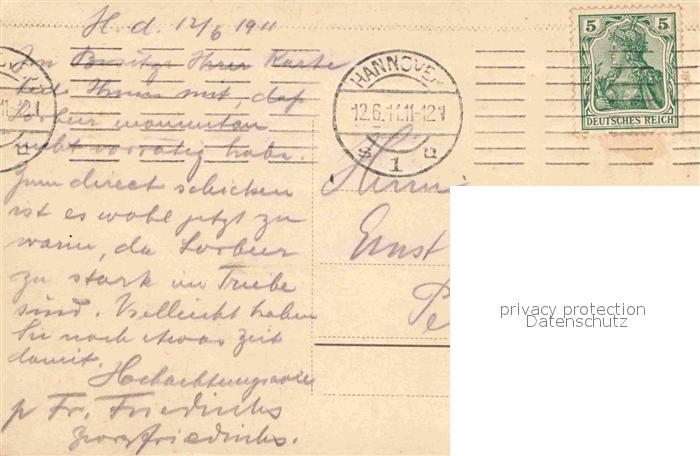 H. d. 12/6 1911
Im Besitze Ihrer Karte
teile Ihnen mit, daß
Lorbeer momentan
nicht vorrätig habe.
Zum direct schicken
ist es wohl jetzt zu
warm, da Lorbeer
zu stark im Triebe
sind. Vielleicht haben
Sie noch etwas Zeit
damit.
Hochachtungsvoll
p Fr. Friedrichs
Georg Friedrichs.
HANNOVER
12.6.11.11-12V
S 1 u
5 5
DEUTSCHES REICH
Herrn
Ernst
Pe
privacy protection
Datenschutz